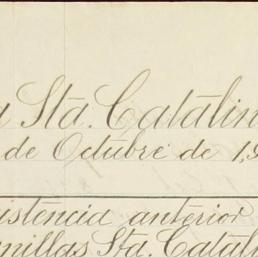 a Sta. Catalin
de Octubre de 1,9
istencia anterior
nillas Sta. Catal